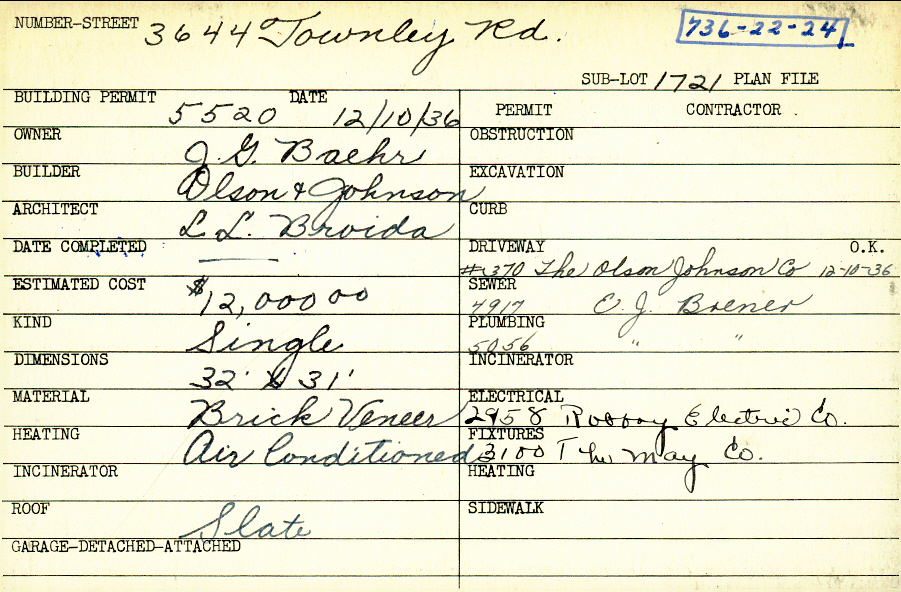 NUMBER-STREET 3644 Townley Rd.
736-22-24
SUB-LOT 1721 PLAN FILE
BUILDING PERMIT 5520 DATE 12/10/36
OWNER J. G. Baehr
BUILDER Olson & Johnson
ARCHITECT L. L. Broida
DATE COMPLETED ———
ESTIMATED COST $12,000 00
KIND Single
DIMENSIONS 32' x 31'
MATERIAL Brick Veneer
HEATING Air Conditioned
INCINERATOR
ROOF Slate
GARAGE-DETACHED-ATTACHED
PERMIT CONTRACTOR
OBSTRUCTION
EXCAVATION
CURB
DRIVEWAY O.K.
#1370 The Olson Johnson Co 12-10-36
SEWER
7917 E. J. Brener
PLUMBING
5056 " "
INCINERATOR
ELECTRICAL
2958 Electric Co.
FIXTURES
3100 The May Co.
HEATING
SIDEWALK